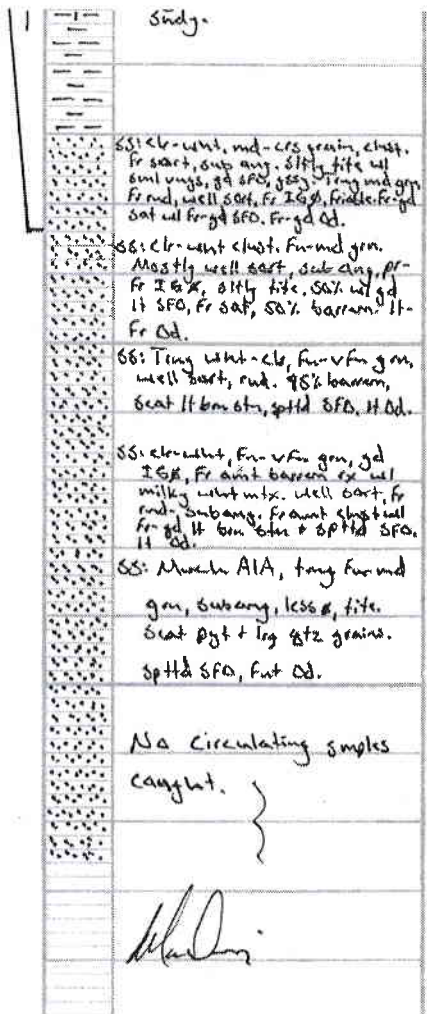 sndy.
SS: clr-wht, md-crs grain, clust.
Fr sort, sub ang. Sltly tite w/
sml vugs, gd SFO, gssy. Trng md grn,
Fr rnd, well sort, Fr IGØ, friable. Fr-gd
sat w/ Fr-gd SFO. Fr-gd Od.
SS: clr-wht clust. Fn-md grn.
Mostly well sort, sub ang, pr-
Fr IGØ, sltly tite, 50% w/ gd
lt SFO, Fr sat, 50% barren. lt-
Fr Od.
SS: Trng wht-clr, Fn-vfn grn,
well sort, rnd. 95% barren,
Scat lt brn stn, spttd SFO, lt Od.
SS: clr-wht, Fn-vfn grn, gd
IGØ, Fr amt barren rx w/
milky wht mtx. Well sort, Fr
rnd-subang. Fr amt clust w/
Fr-gd, lt brn stn + spttd SFO.
lt Od.
SS: Much AIA, trng Fn-md
grn, subang, less ø, tite.
Scat pyt + lrg qtz grains.
spttd SFO, Fnt Od.
No Circulating smples
caught.